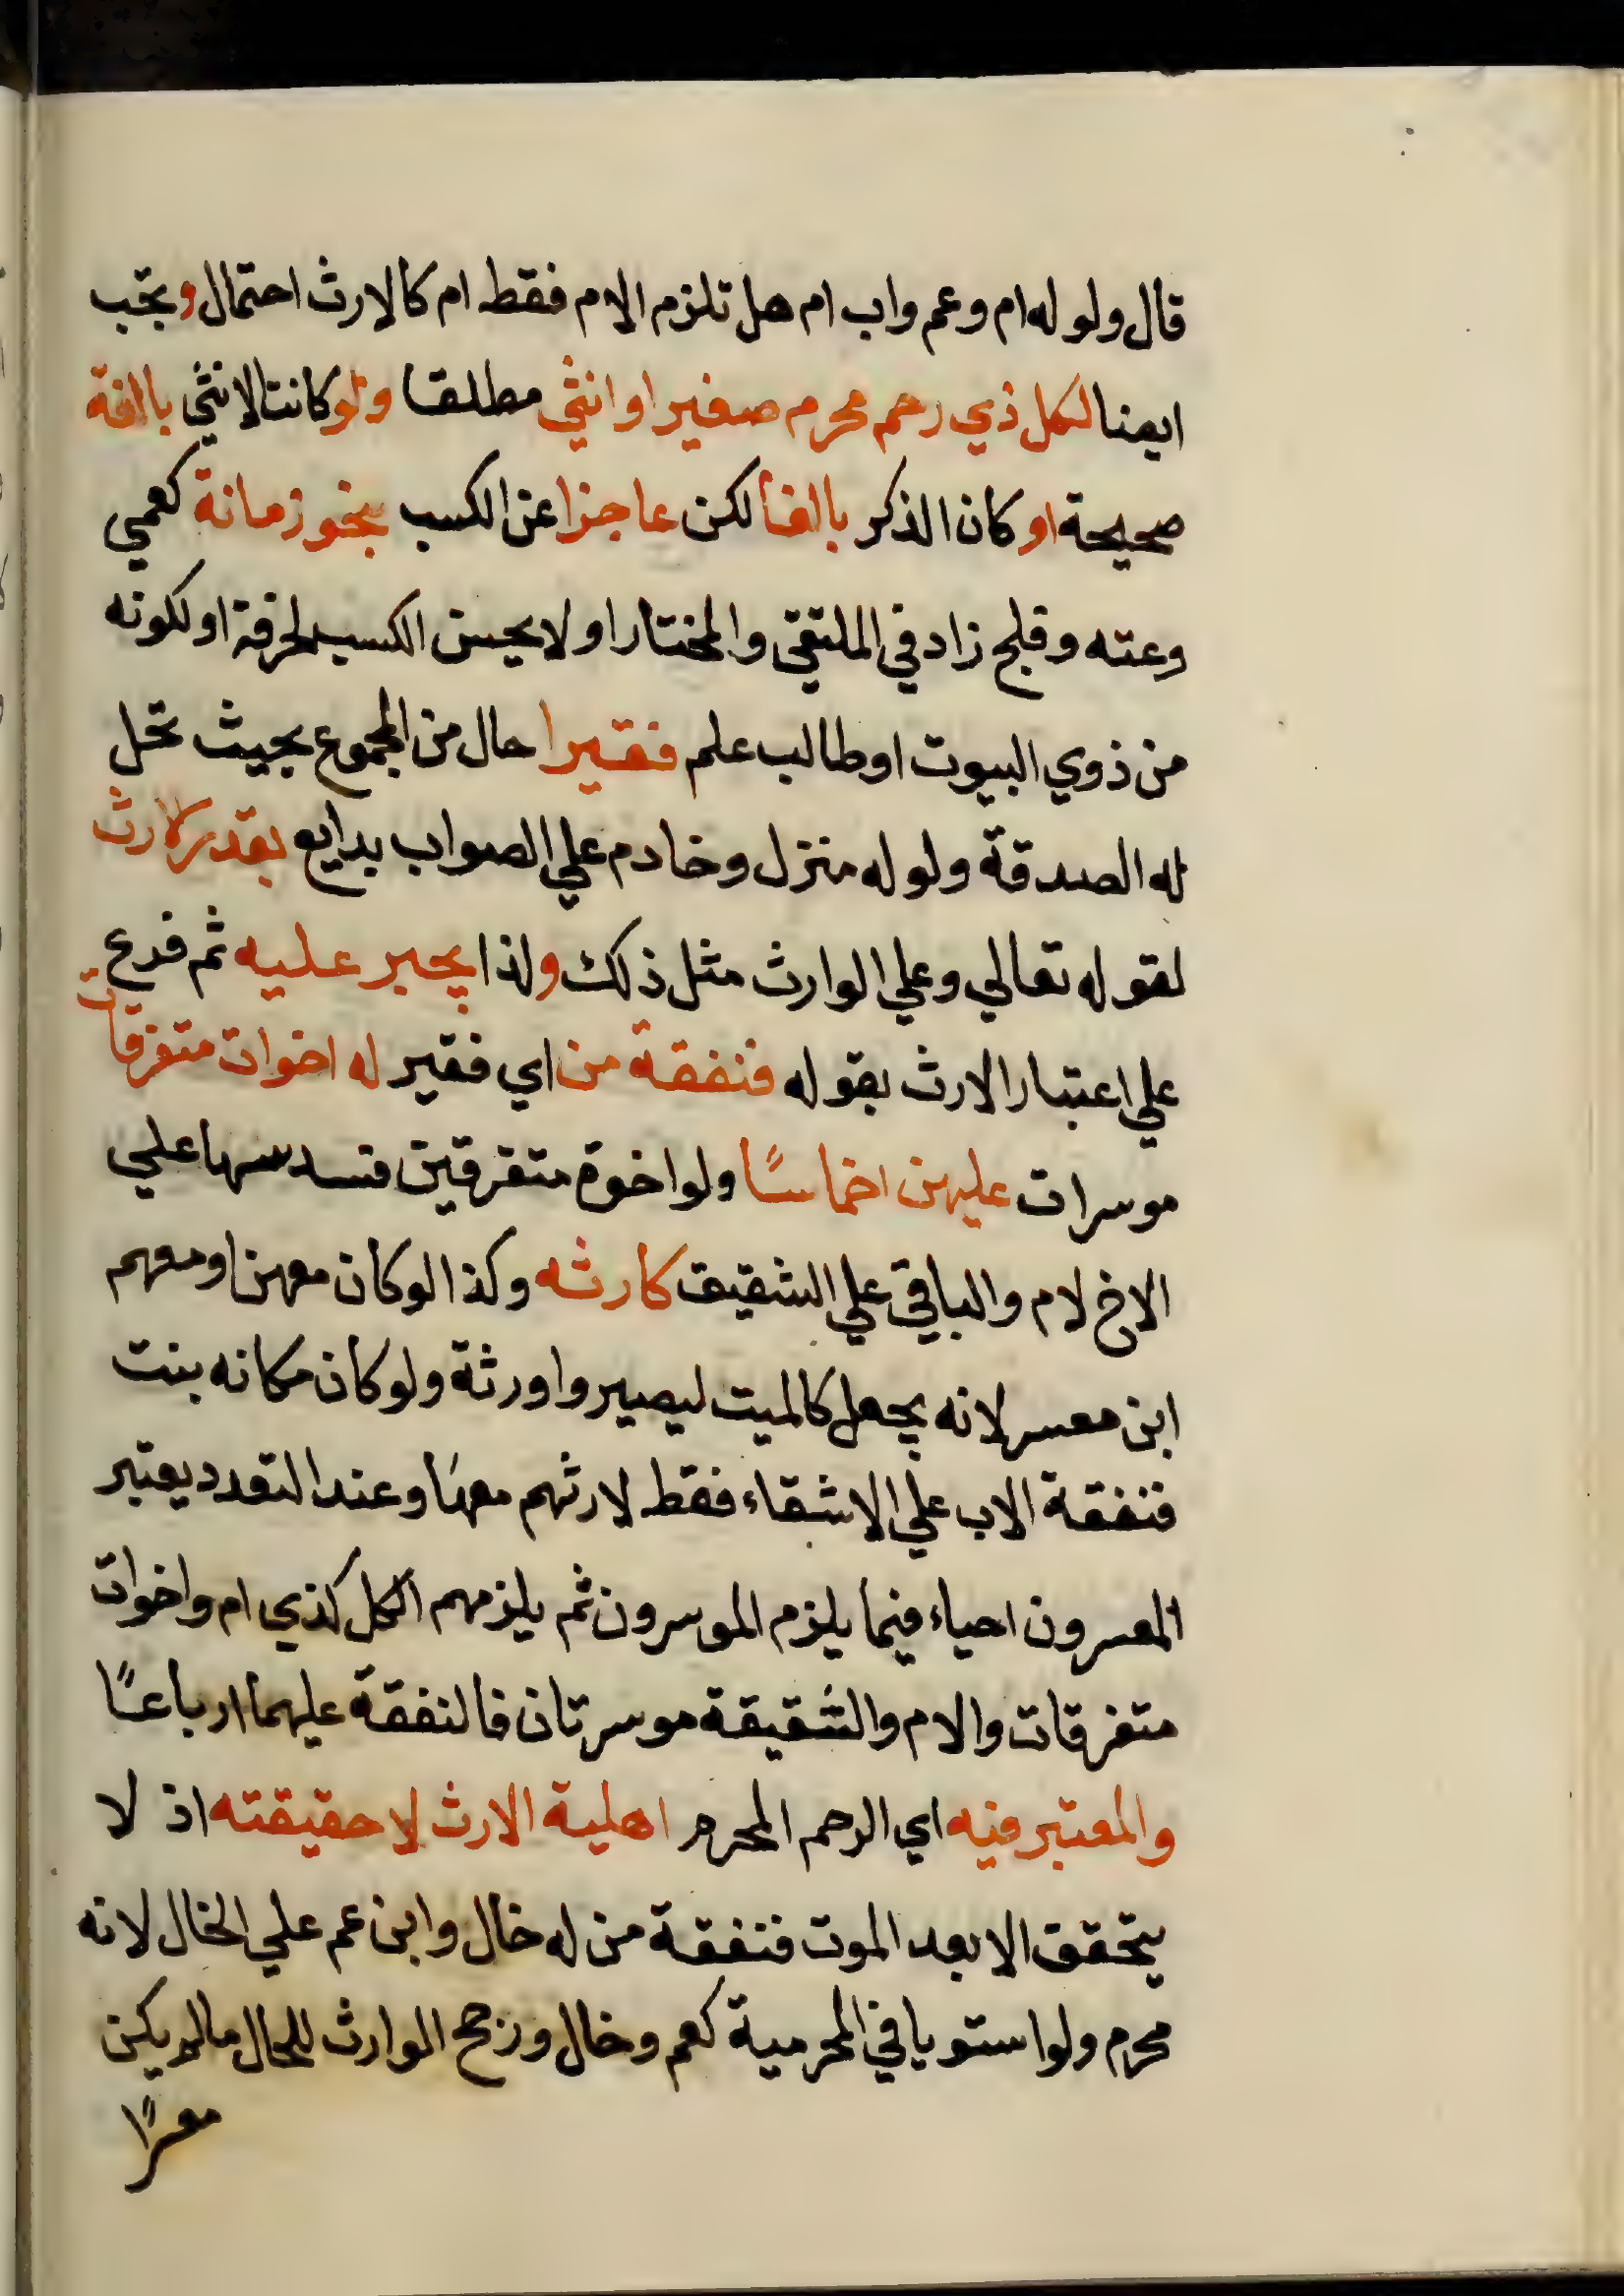 قال ولو له ام وعم واب ام هل تلزم الام فقط ام كالارث احتمال وتجب
ايضا لكل ذي رحم محرم صغير او انثي مطلقا ولو كانت الانثي بالغة
صحيحة او كان الذكر بالغا لكن عاجزا عن الكسب بنحو زمانة كعمي
وعته وفلج زاد في الملتقي والمختار او لا يحسن الكسب لحرفة او لكونه
من ذوي البيوت او طالب علم فقيرا حال من المجموع بحيث تحل
له الصدقة ولو له منزل وخادم علي الصواب بدايع بقدر الارث
لقوله تعالي وعلي الوارث مثل ذلك ولذا يجبر عليه ثم فرع
علي اعتبار الارث بقوله فنفقة من اي فقير له اخوات متفرقات
موسرات عليهن اخماسًا ولو اخوة متفرقين فسدسها علي
الاخ لام والباقي علي الشقيق كارثه وكذا لو كان معهن او معهم
ابن معسر لانه يجعل كالميت ليصيروا ورثة ولو كان مكانه بنت
فنفقة الاب علي الاشقاء فقط لارثهم معها وعند التعدد يعتبر
المعسرون احياء فيما يلزم الموسرون ثم يلزمهم الكل كذي ام واخوات
متفرقات والام والشقيقة موسرتان فالنفقة عليهما ارباعًا
والمعتبر فيه اي الرحم المحرم اهلية الارث لا حقيقته اذ لا
يتحقق الا بعد الموت فنفقة من له خال وابن عم علي الخال لانه
محرم ولو استويا في المحرمية كعم وخال ورجح الوارث للحال مالم يكن
معسرًا